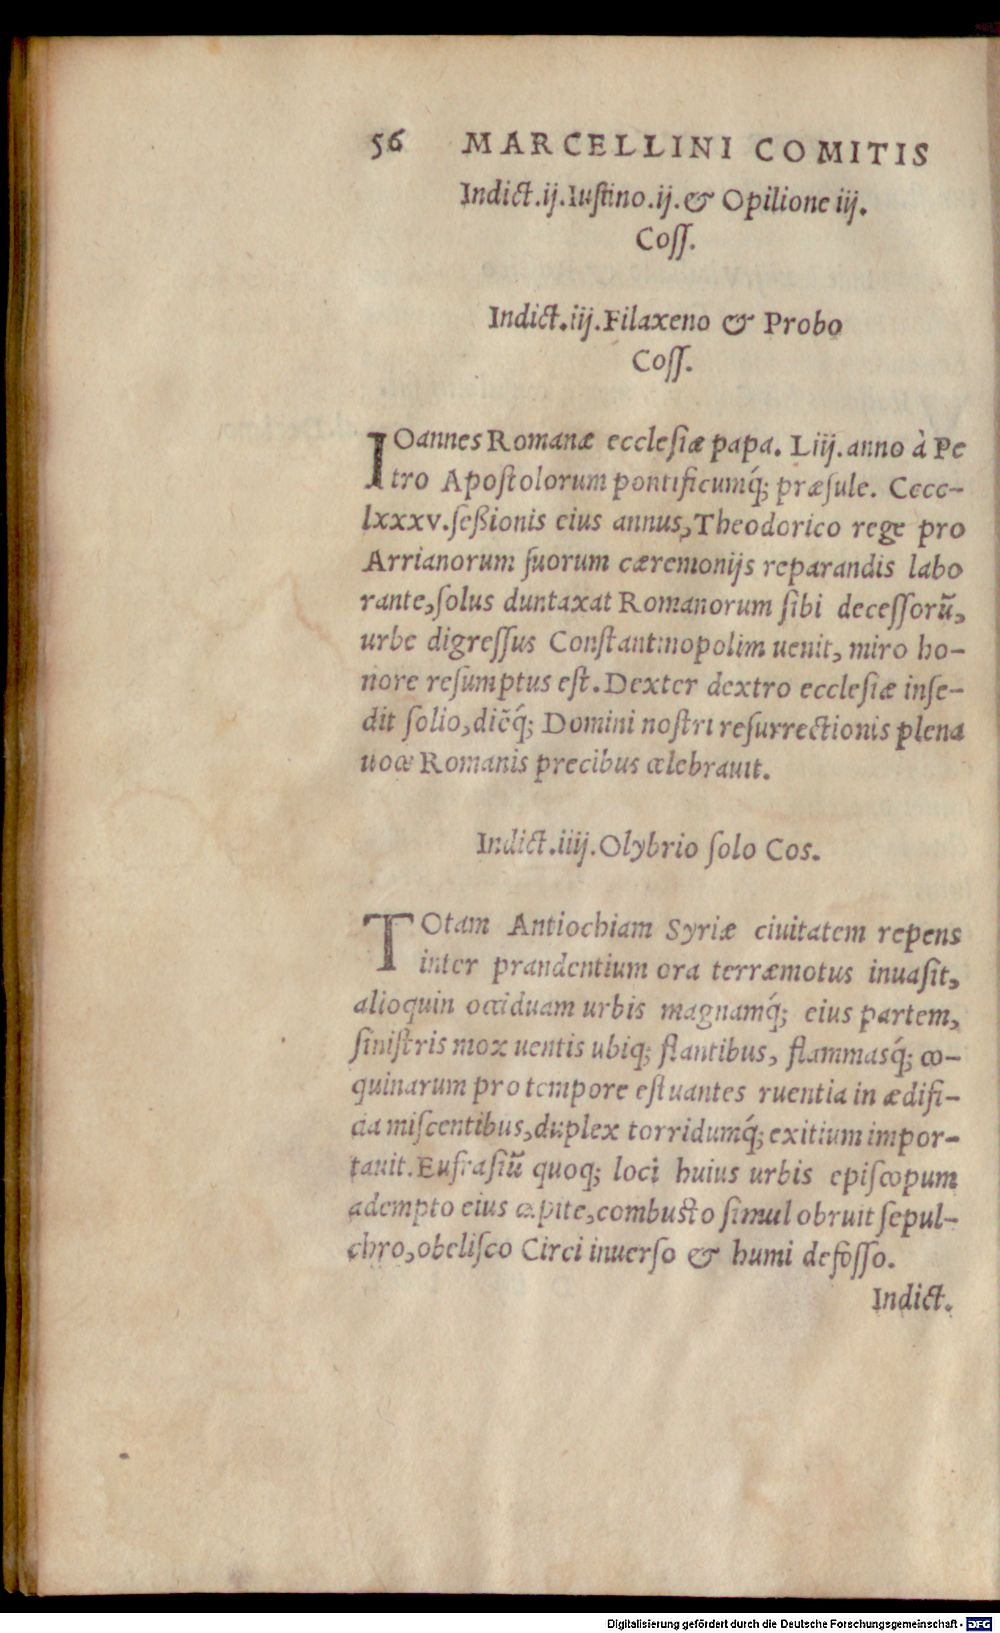 56 MARCELLINI COMITIS
Indict.ij.Iustino.ij.& Opilione iij.
Coss.
Indict.iij.Filaxeno & Probo
Coss.
IOannes Romanæ ecclesiæ papa. Liij.anno à Pe
tro Apostolorum pontificumq́; præsule. Cccc-
lxxxv.seßionis eius annus,Theodorico rege pro
Arrianorum suorum cæremonijs reparandis labo
rante,solus duntaxat Romanorum sibi decessorũ,
urbe digressus Constantinopolim uenit, miro ho-
nore resumptus est.Dexter dextro ecclesiæ inse-
dit solio,dic̃q́; Domini nostri resurrectionis plena
uoce Romanis precibus celebrauit.
Indict.iiij.Olybrio solo Cos.
TOtam Antiochiam Syriæ ciuitatem repens
inter prandentium ora terræmotus inuasit,
alioquin occiduam urbis magnamq́; eius partem,
sinistris mox uentis ubiq; flantibus, flammasq́; co-
quinarum pro tempore estuantes ruentia in ædifi-
cia miscentibus,duplex torridumq́; exitium impor-
tauit.Eufrasiũ quoq; loci huius urbis episcopum
adempto eius capite,combusto simul obruit sepul-
chro,obelisco Circi inuerso & humi defosso.
Indict.
Digitalisierung gefördert durch die Deutsche Forschungsgemeinschaft - DFG